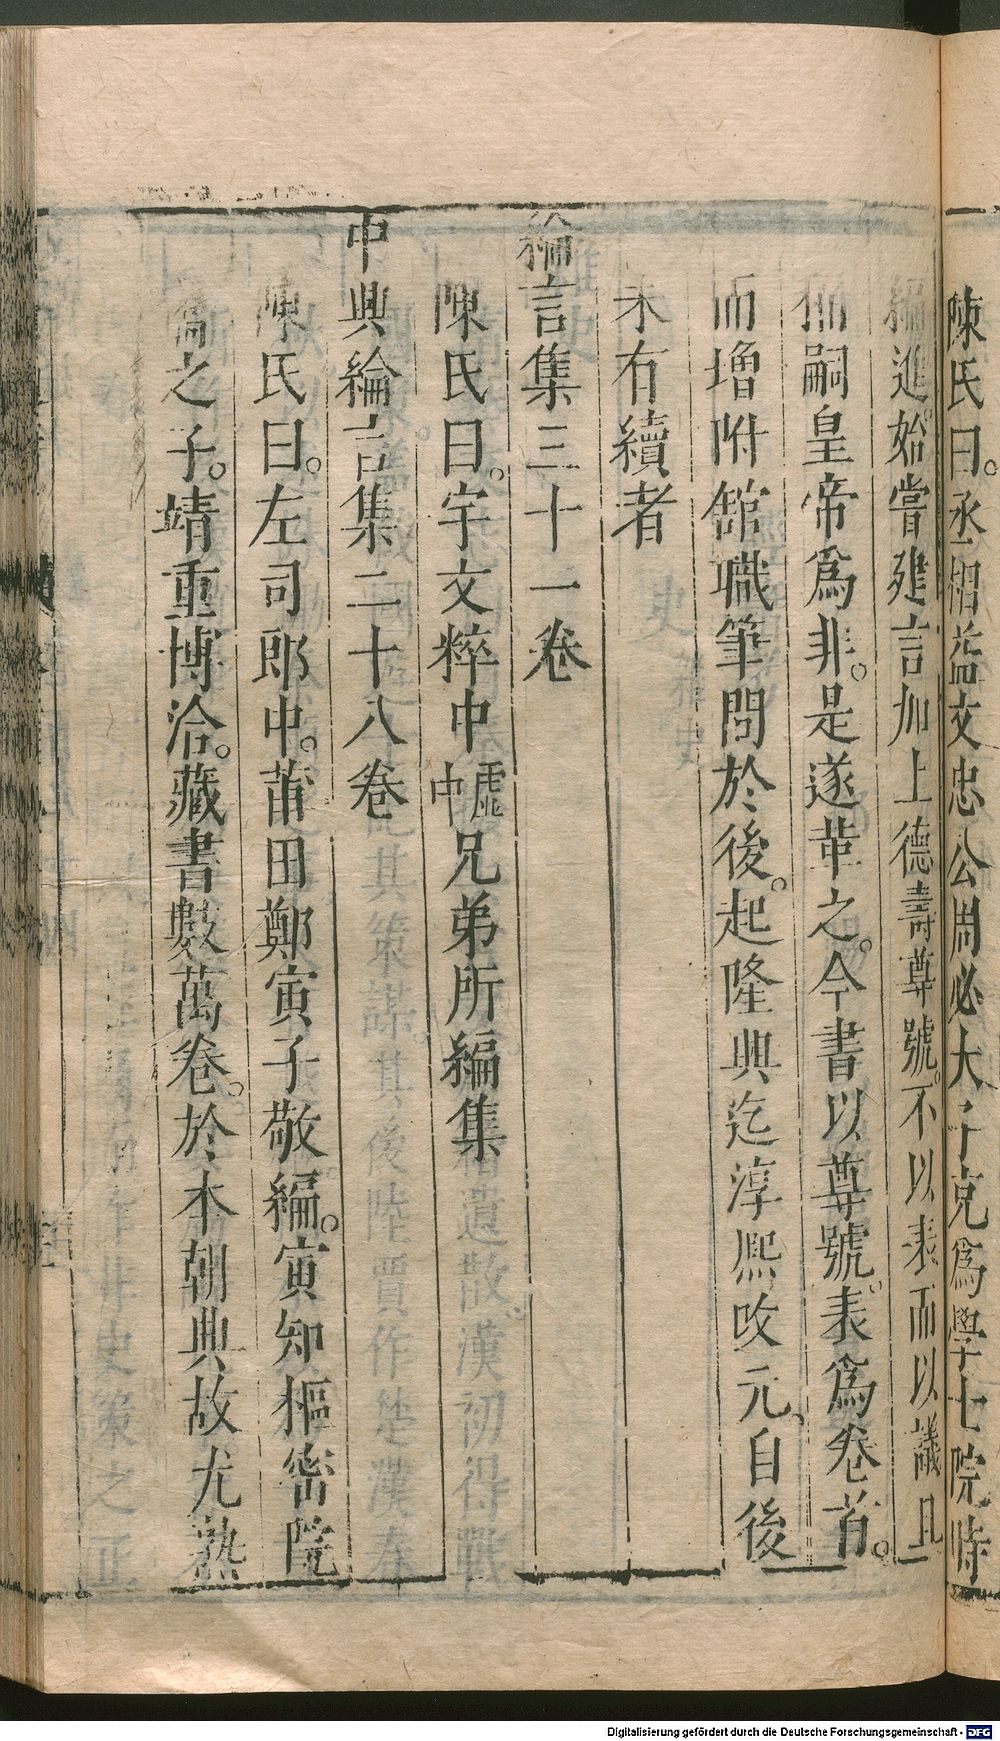 陳氏曰。丞相益文忠公周必大子充爲學士院時
編進。始嘗建言加上德壽尊號。不以表而以議且
稱嗣皇帝爲非。是遂革之。今書以尊號。表爲卷首。
而增附館職筆問於後。起隆興迄淳熙改元、自後
未有續者
綸言集三十一卷
陳氏曰。宇文粹中虛中兄弟所編集
中興綸言集二十八卷
陳氏曰。左司郎中。莆田鄭寅子敬編。寅知樞密院
僑之子。靖重博洽。藏書數萬卷。於本朝典故尤熟
Digitalisierung gefördert durch die Deutsche Forschungsgemeinschaft - DFG